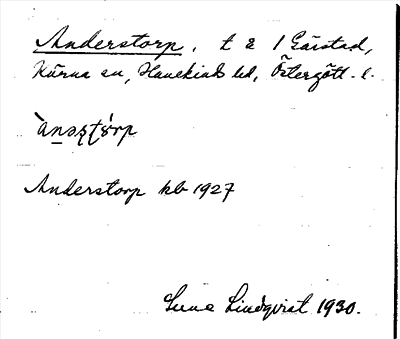 Anderstorp, t e 1 Gärstad,
Kärna sn, Hanekinds hd, Östergötl. l.
ànəʂʈórp
Anderstorp kb 1927
Sune Lindqvist 1930.